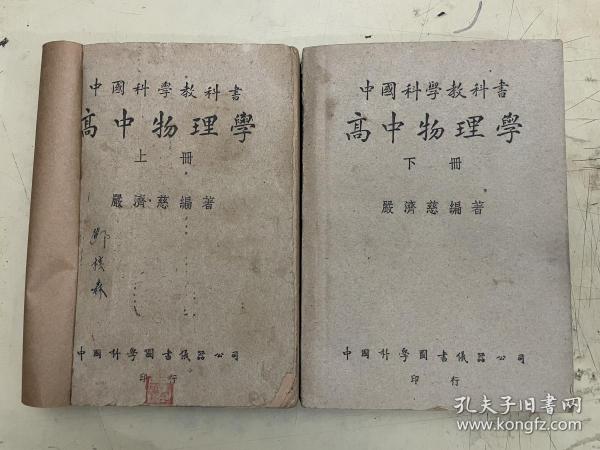 中國科學教科書
高中物理學
上冊
嚴濟慈編著
中國科學圖書儀器公司
印行
中國科學教科書
高中物理學
下冊
嚴濟慈編著
中國科學圖書儀器公司
印行
孔夫子旧书网
www.kongfz.com